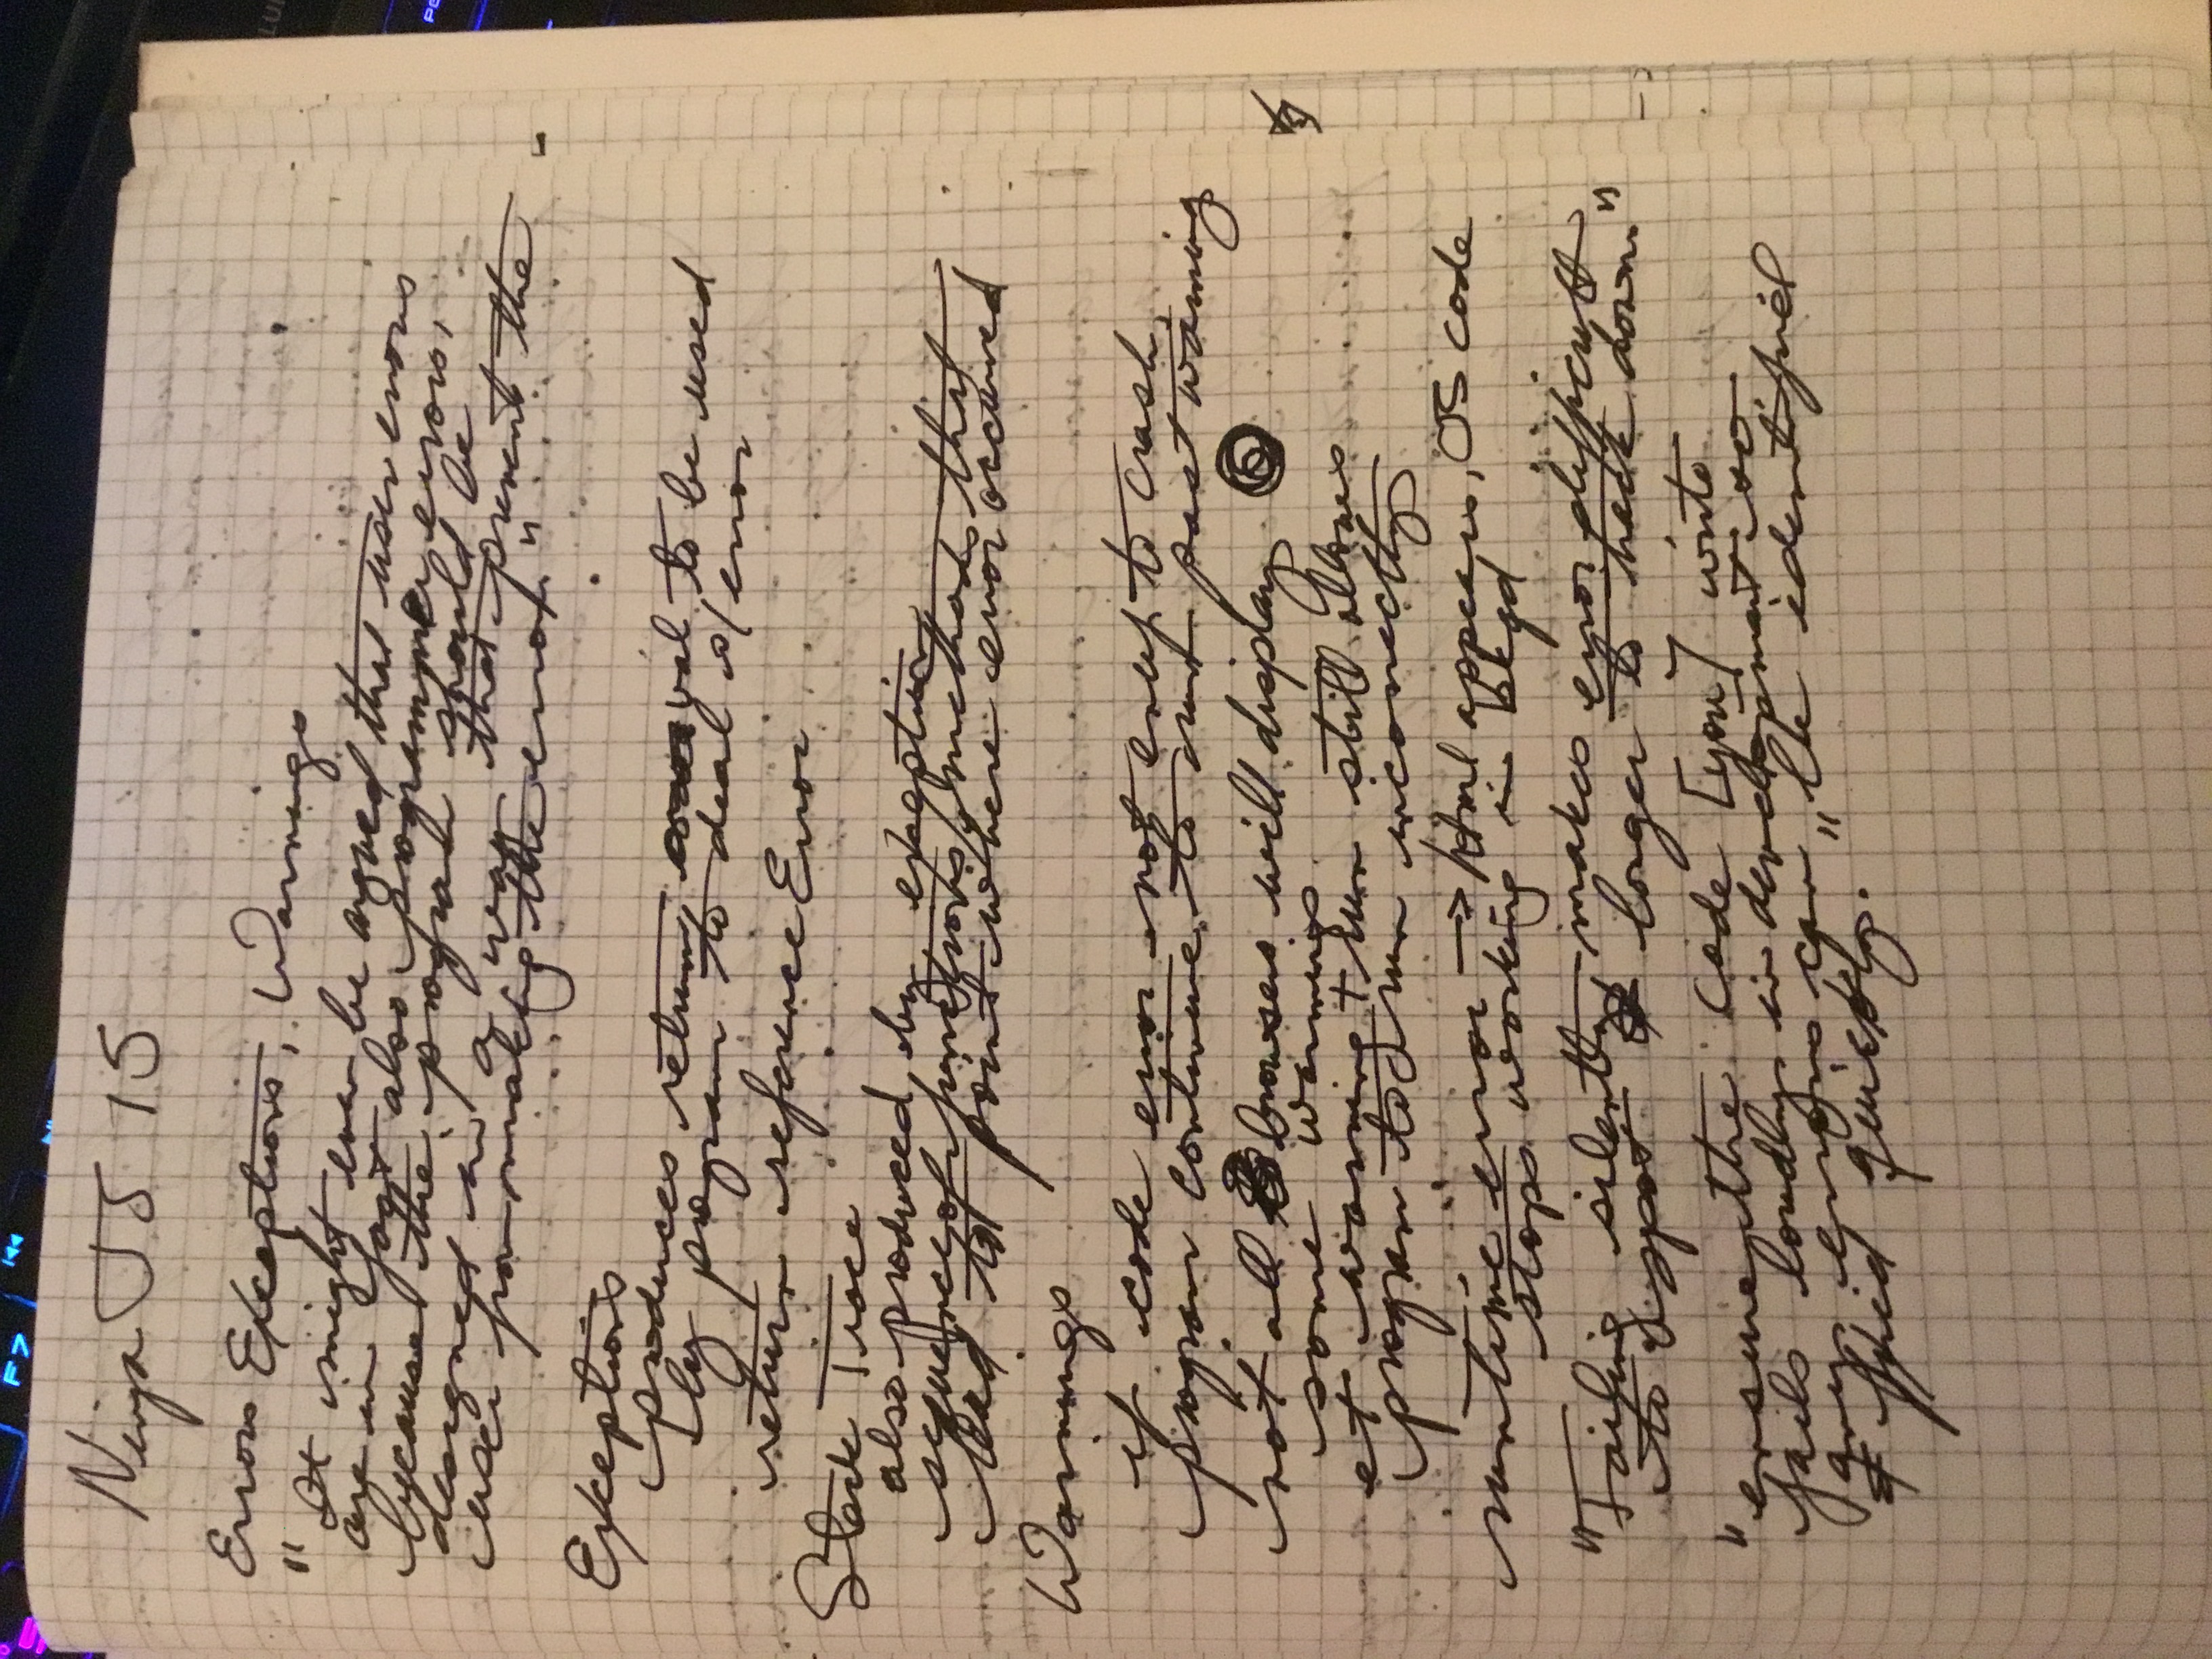 F7
Ninja JS 15
Errors Exceptions, Warnings
"It might even be argued that user errors
are in fact also programmer errors,
because the program should be
designed in a way that prevents the
user from making the error."
Exceptions
produces return val to be used
by program to deal w/ error
return reference Error
Stack Trace
also produced by exception
sequence of functions/methods that
lead to point where error occurred
Warnings
if code error not enuf to crash,
program continue to run past warning
not all browsers will display
some warnings
et warning + run still allows
program to run incorrectly
runtime error → html appears, JS code
stops working in bkgd
"Failing silently makes error difficult
to spot & longer to track down."
"ensure the code [you] write
fails loudly in development so
any errors can be identified
& fixed quickly."